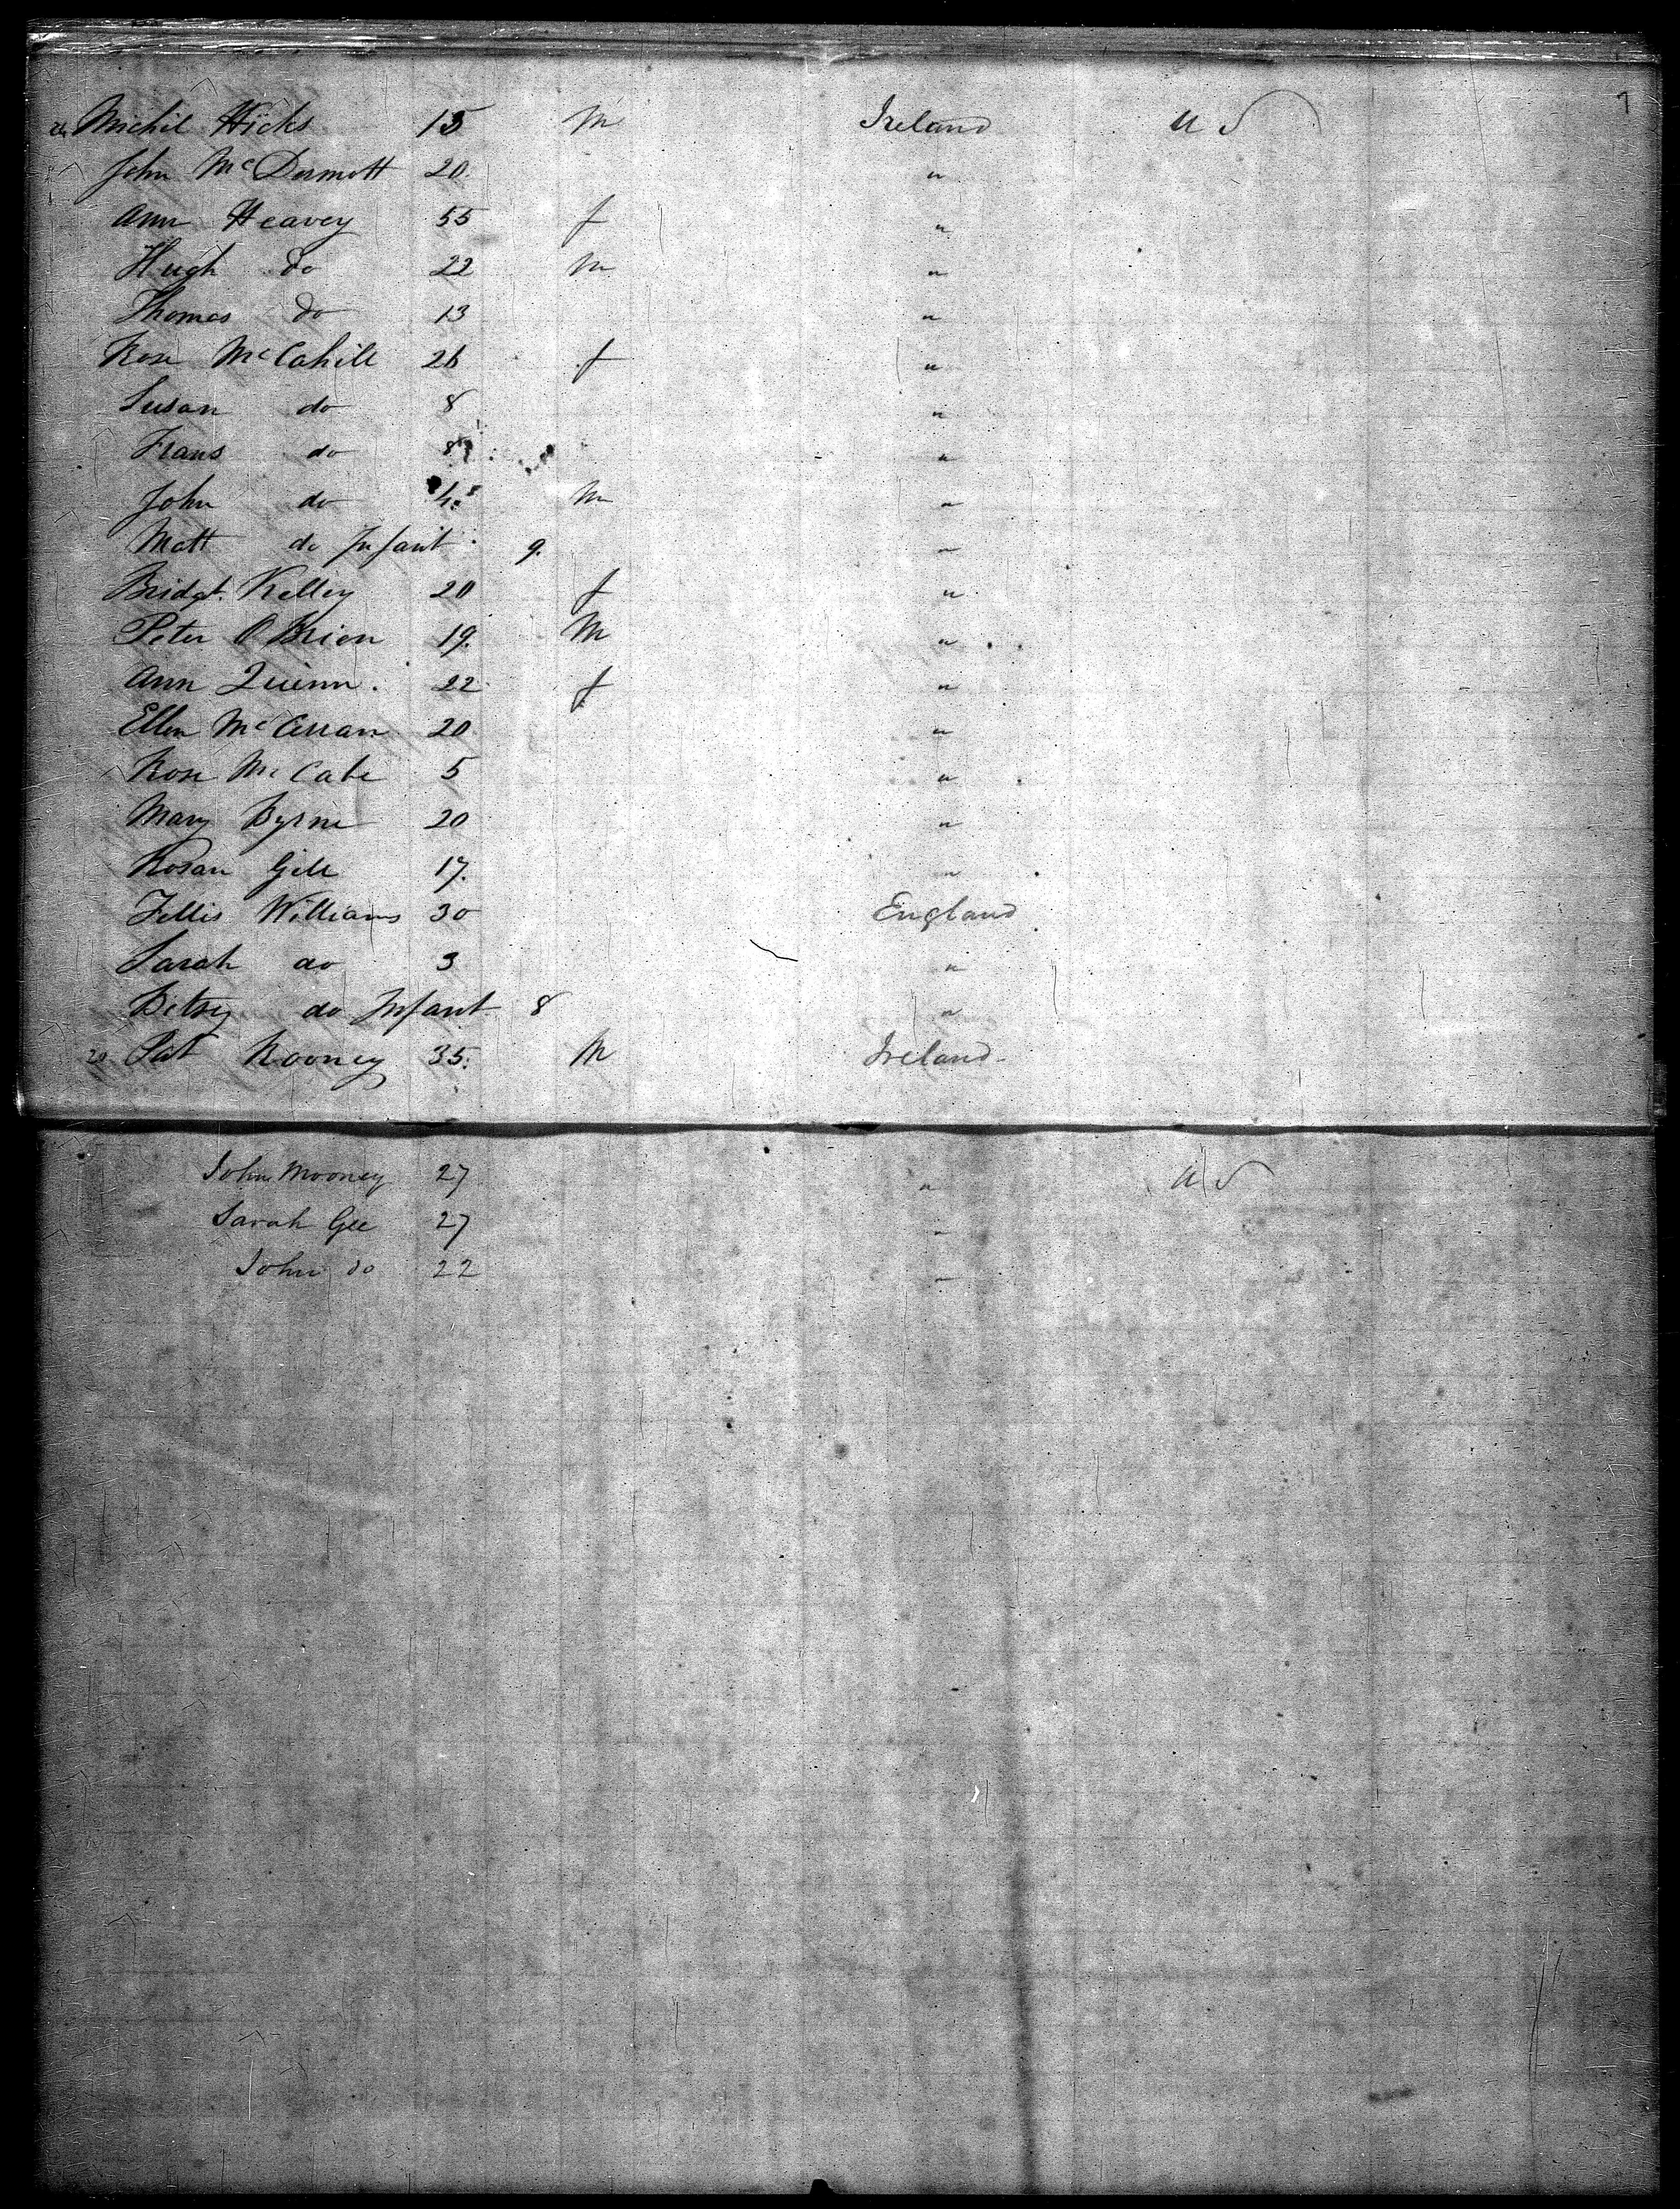 Michil Hicks 15 M Ireland U S
John McDermott 20 "
Ann Heavey 55 f "
Hugh do 22 M "
Thomas do 13 "
Rose McCahill 26 f "
Susan do 8 "
Frans do 8 "
John do 4 M "
Matt do Infant 9. "
Bridgt. Kelley 20 f "
Peter OBrien 19. M "
Ann Quinn. 22 f "
Ellen 20 "
Rose McCabe 5 "
Mary Byrne 20 "
Rosan Gill 17. "
Fellis Williams 30 England
Sarah do 3 "
Betsey do Infant 8 "
20 Pat Rooney 35. M Ireland
John Mooney 27 " U S
Sarah Gee 27 "
John do 22 "